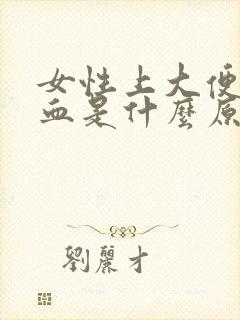 女性上大便
血是什麼原
劉麗才